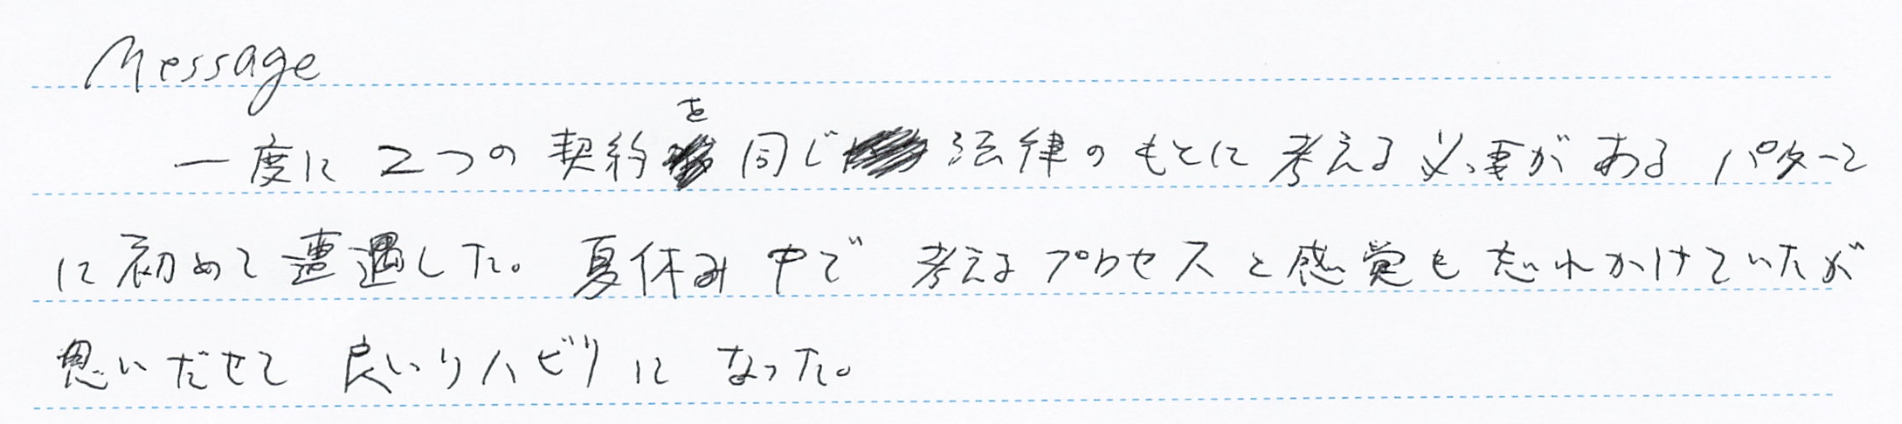 Message
一度に2つの契約を同じ法律のもとに考える必要があるパターン
に初めて遭遇した。夏休み中で考えるプロセスと感覚も忘れかけていたが
思いだせて良いリハビリになった。